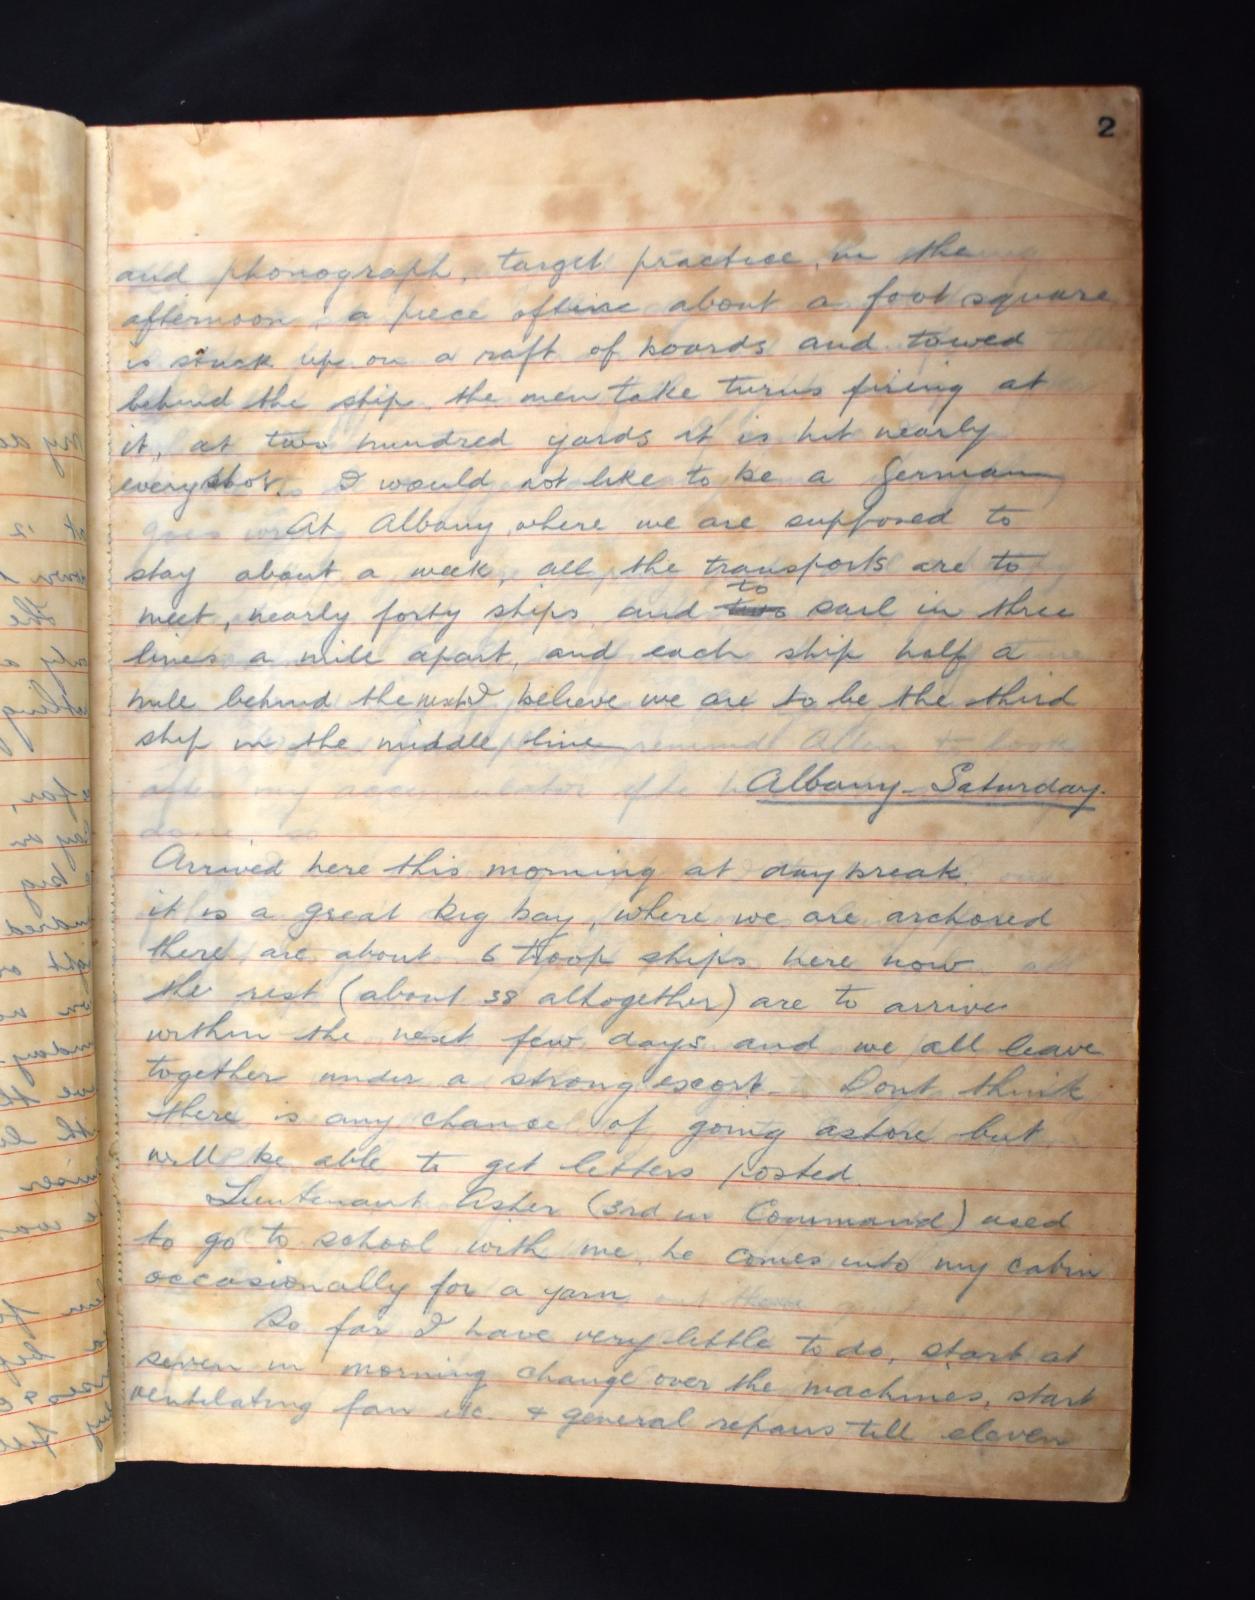 2
and phonograph, target practice, in the
afternoon, a piece of tine about a foot square
is stuck up on a raft of boards and towed
behind the ship. the men take turns firing at
it, at two hundred yards it is hit nearly
every shot. I would not like to be a German
At Albany, where we are supposed to
stay about a week, all the transports are to
meet, nearly forty ships and to sail in three
lines a mile apart, and each ship half a
mile behind the next I believe we are to be the third
ship in the middle line
Albany Saturday.
Arrived here this morning at daybreak.
it is a great big bay, where we are anchored
there are about 6 troop ships here now
the rest (about 38 altogether) are to arrive
within the next few days and we all leave
together under a strong escort. Dont think
there is any chance of going ashore but
will be able to get letters posted.
Lieutenant Asher (3rd in Command) used
to go to school with me, he comes into my cabin
occasionally for a yarn
So far I have very little to do, start at
seven in morning change over the machines, start
ventilating fan etc. & general repairs till eleven